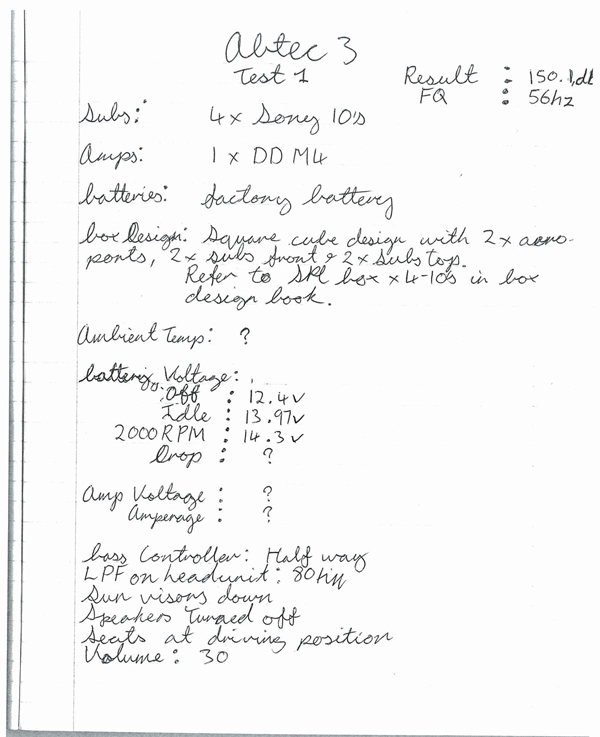 Abtec 3
Test 1
Result : 150.1db
FQ : 56hz
Subs: 4x Sony 10's
Amps: 1 x DD M4
batteries: factory battery
box Design: Square cube design with 2x aero-
ports, 2x subs front & 2x subs top.
Refer to SPL box x4-10's in box
design book.
Ambient Temp: ?
battery Voltage:
Off : 12.4v
Idle : 13.97v
2000 RPM : 14.3v
Drop : ?
Amp Voltage : ?
Amperage : ?
bass Controller: Half way
LPF on headunit: 80hz
Sun visors down
Speakers Turned off
Seats at driving position
Volume: 30